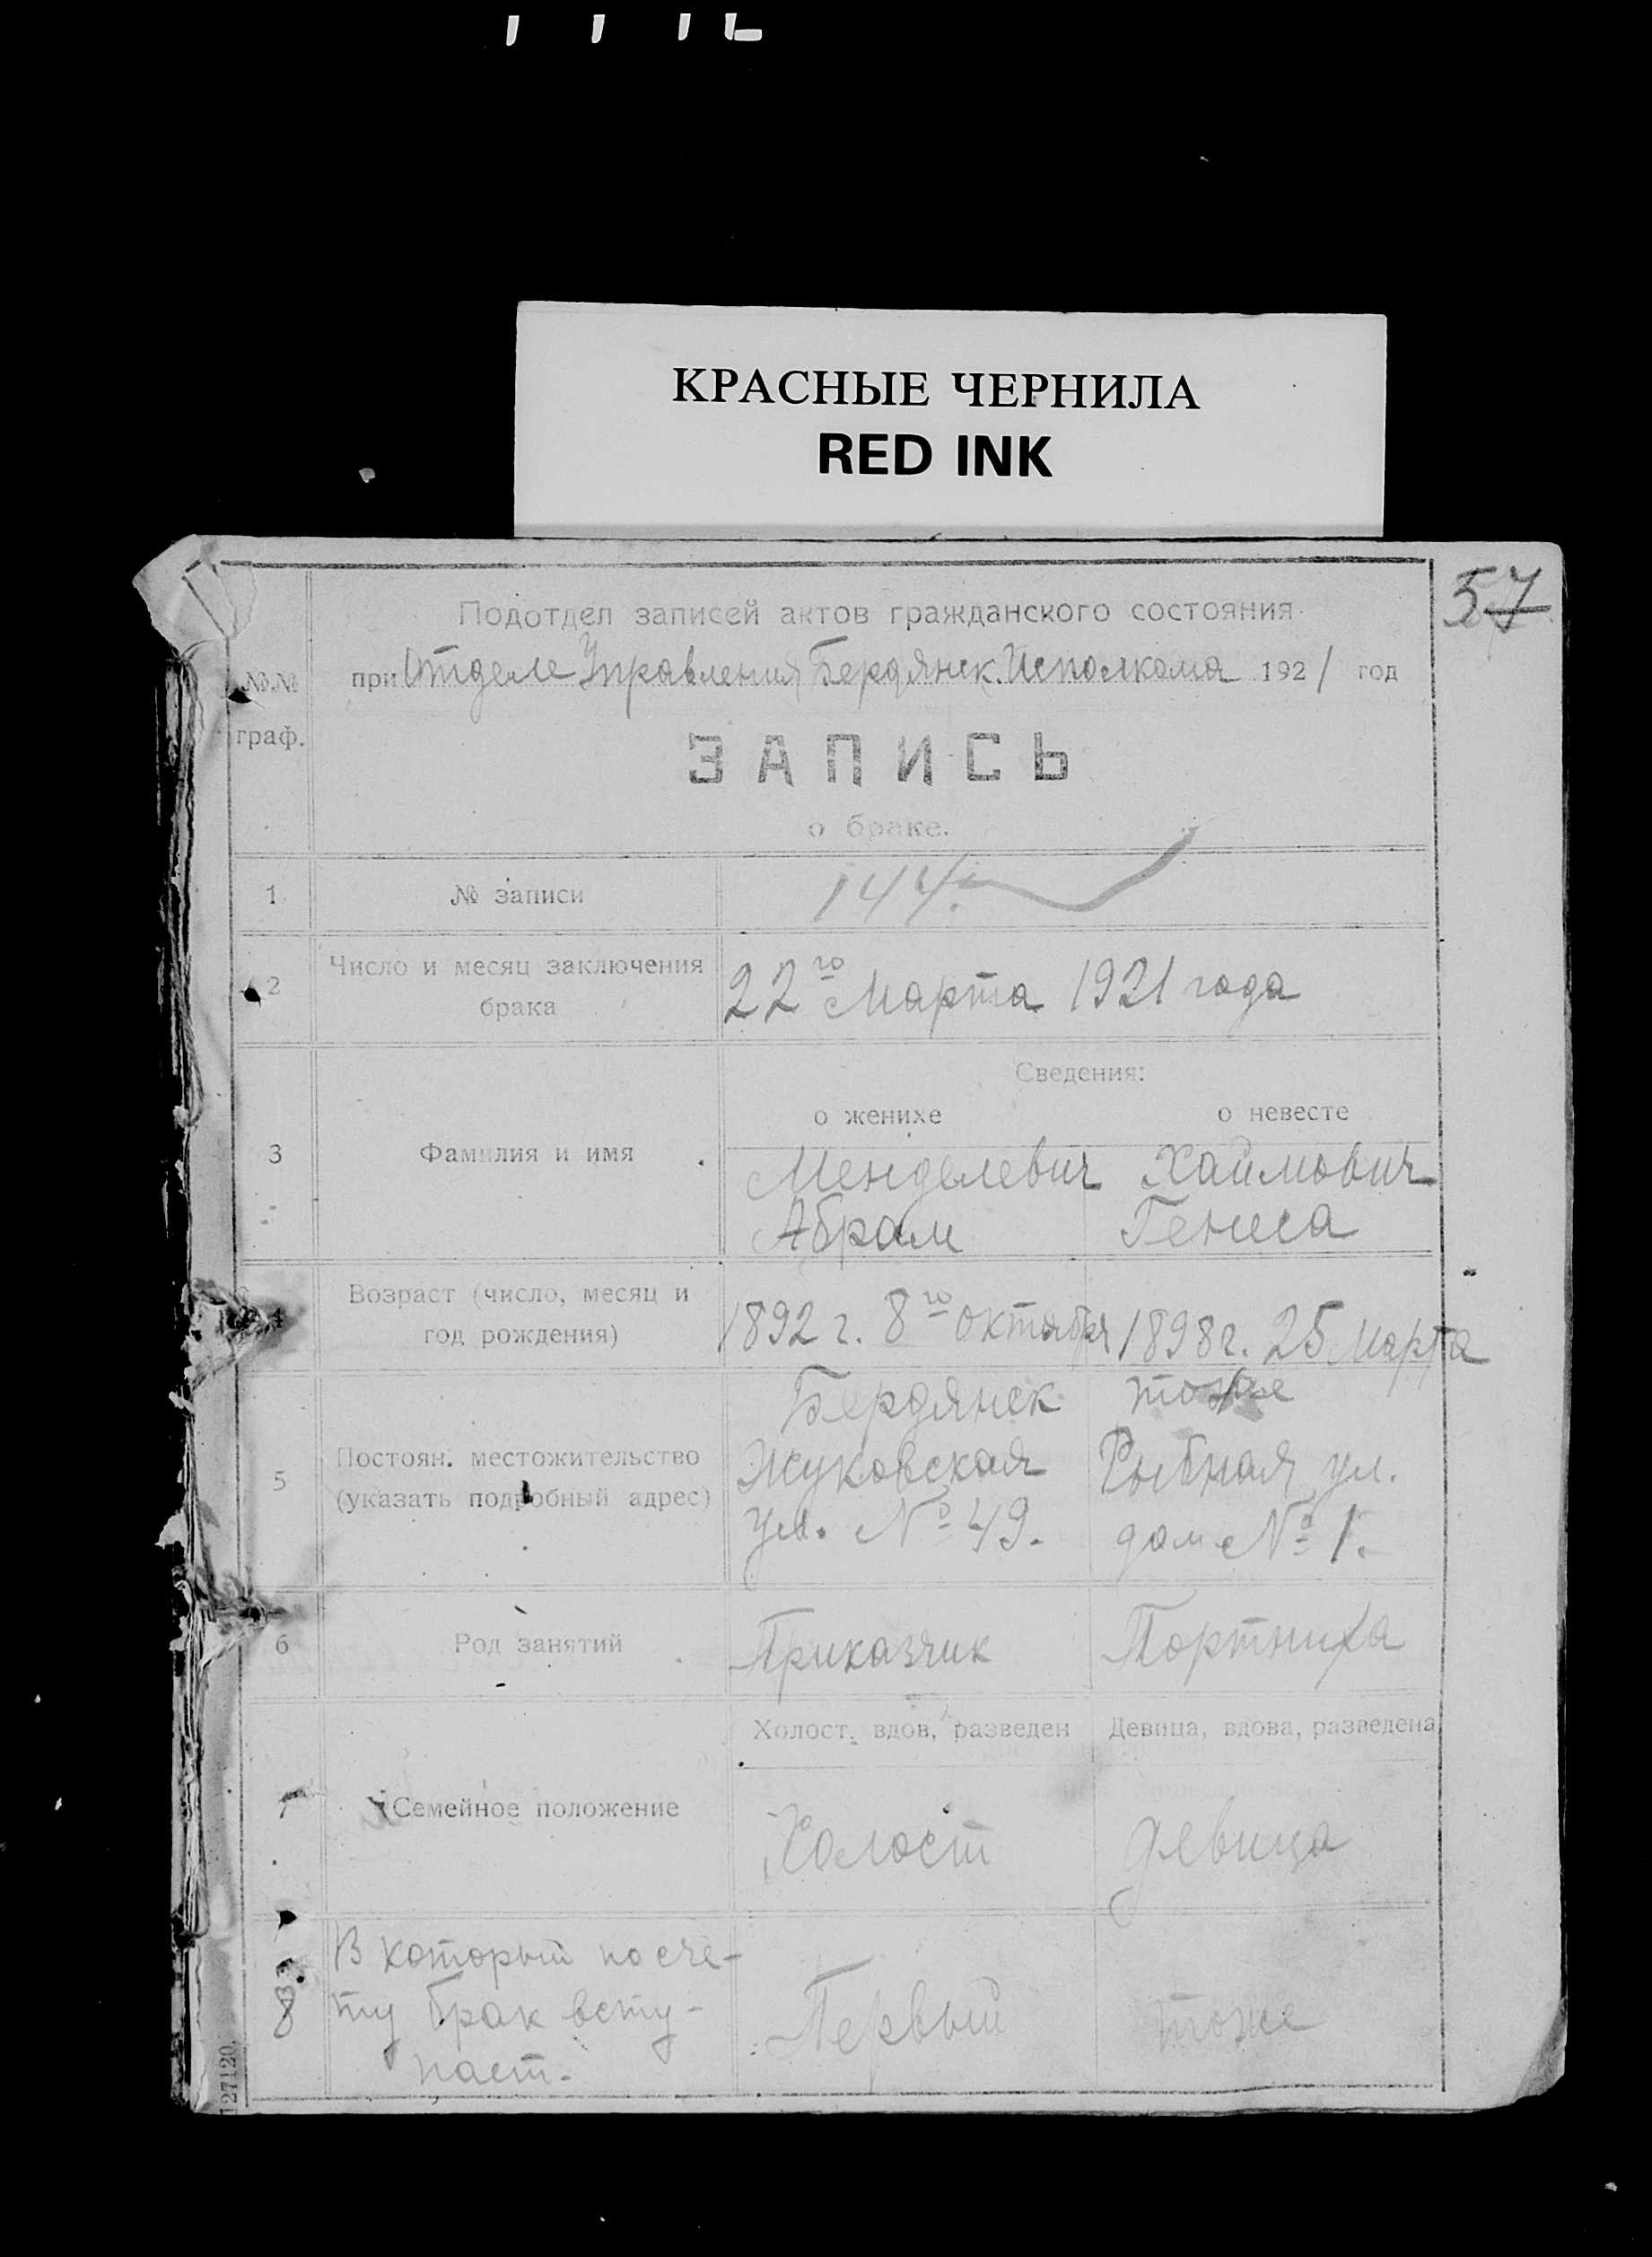 КРАСНЫЕ ЧЕРНИЛА
RED INK
57
Подотдел записей актов гражданского состояния
при Отделе Управления Бердянск. Исполкома 1921 год
№.№
граф.
ЗАПИСЬ
о браке.
1 № записи 144.
2 Число и месяц заключения брака 22го Марта 1921 года
Сведения:
о женихе о невесте
3 Фамилия и имя Менделевич Хаймович
Абрам Гениса
4 Возраст (число, месяц и
год рождения) 1892 г. 8го октября 1898 г. 25 марта
Бердянск тоже
5 Постоян. местожительство Жуковская Рыбная ул.
(указать подробный адрес) ул. № 49. дом № 1.
6 Род занятий Приказчик Портниха
Холост, вдов, разведен Девица, вдова, разведена
7 Семейное положение
Холост девица
В который по сче-
8 ту брак всту- Первый тоже
пает.
127120.